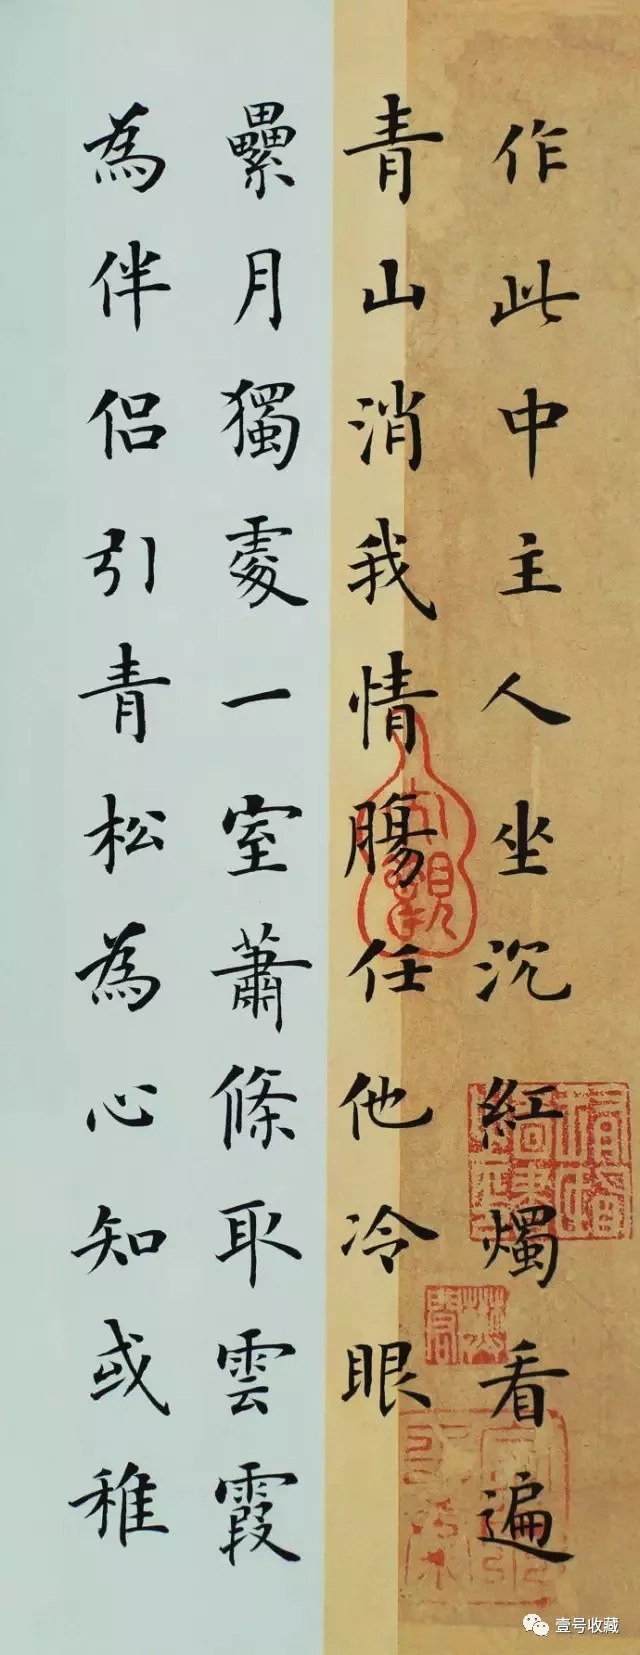 作此中主人坐沉紅燭看遍
青山消我情腸任他冷眼
纍月獨處一室蕭條取雲霞
為伴侣引青松為心知或稚
壹号收藏